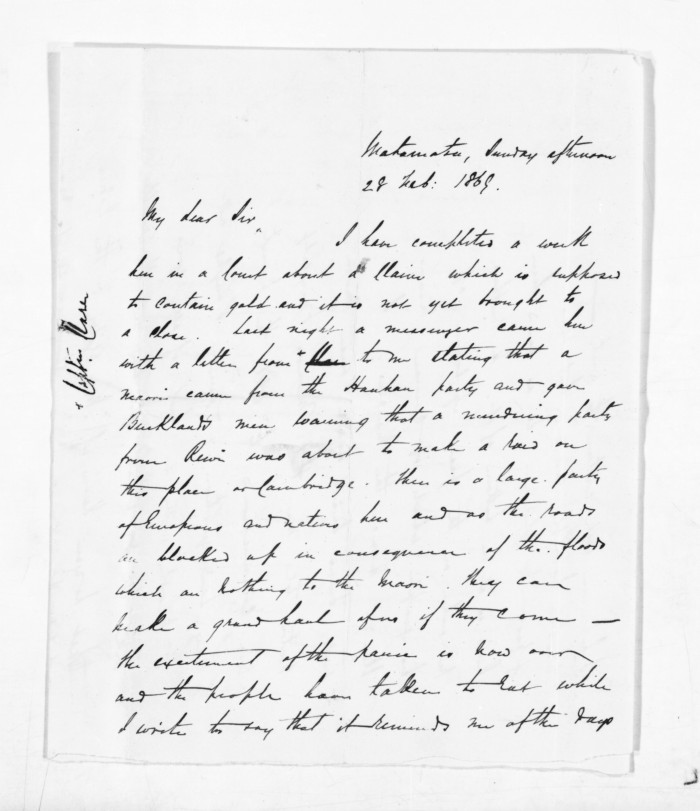 Matamata, Sunday afternoon
28 Feb: 1869.
My dear Sir,
I have completed a week
here in a Court about a Claim which is supposed
to contain gold and it is not yet brought to
a close. Last night a messenger came here
with a letter from + to me stating that a
maori came from the Hauhau party and gave
Bucklands men warning that a murdering party
from Rewi was about to make a raid on
this place or Cambridge. There is a large party
of Europeans and natives here and as the roads
are blocked up in consequence of the floods
which are nothing to the Maori. They can
make a grand haul of us if they come —
the excitement of the panic is now over
and the people have taken to eat while
I write to say that it reminds me of the days
+ Captn: Clare